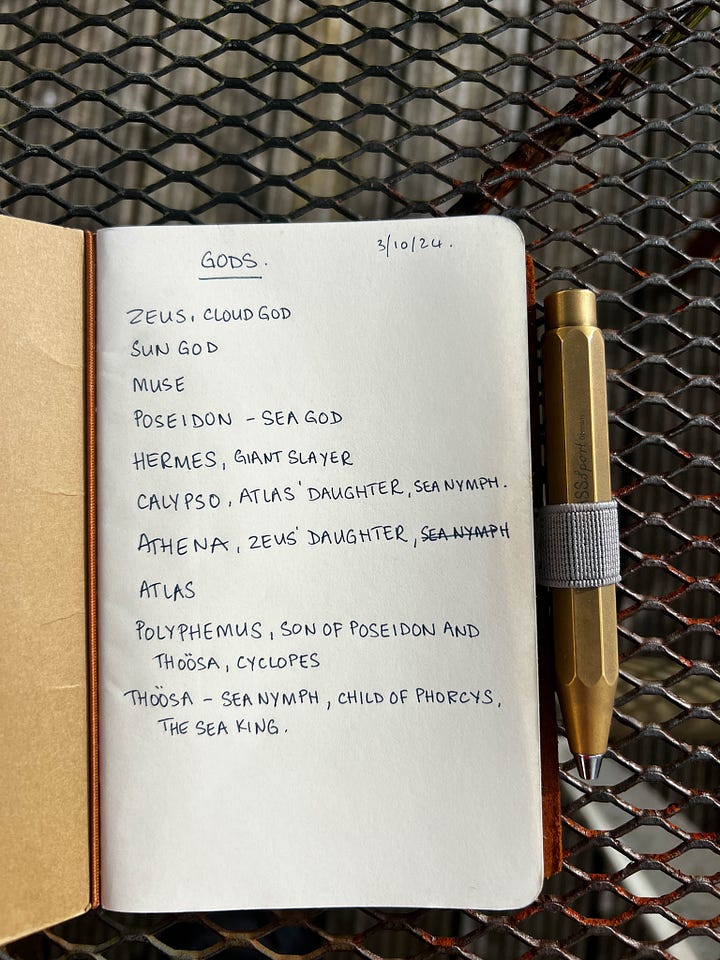 GODS.
3/10/24.
ZEUS, CLOUD GOD
SUN GOD
MUSE
POSEIDON - SEA GOD
HERMES, GIANT SLAYER
CALYPSO, ATLAS' DAUGHTER, SEA NYMPH.
ATHENA, ZEUS' DAUGHTER, SEA NYMPH
ATLAS
POLYPHEMUS, SON OF POSEIDON AND
THOÖSA, CYCLOPES
THOÖSA - SEA NYMPH, CHILD OF PHORCYS,
THE SEA KING.
Sport